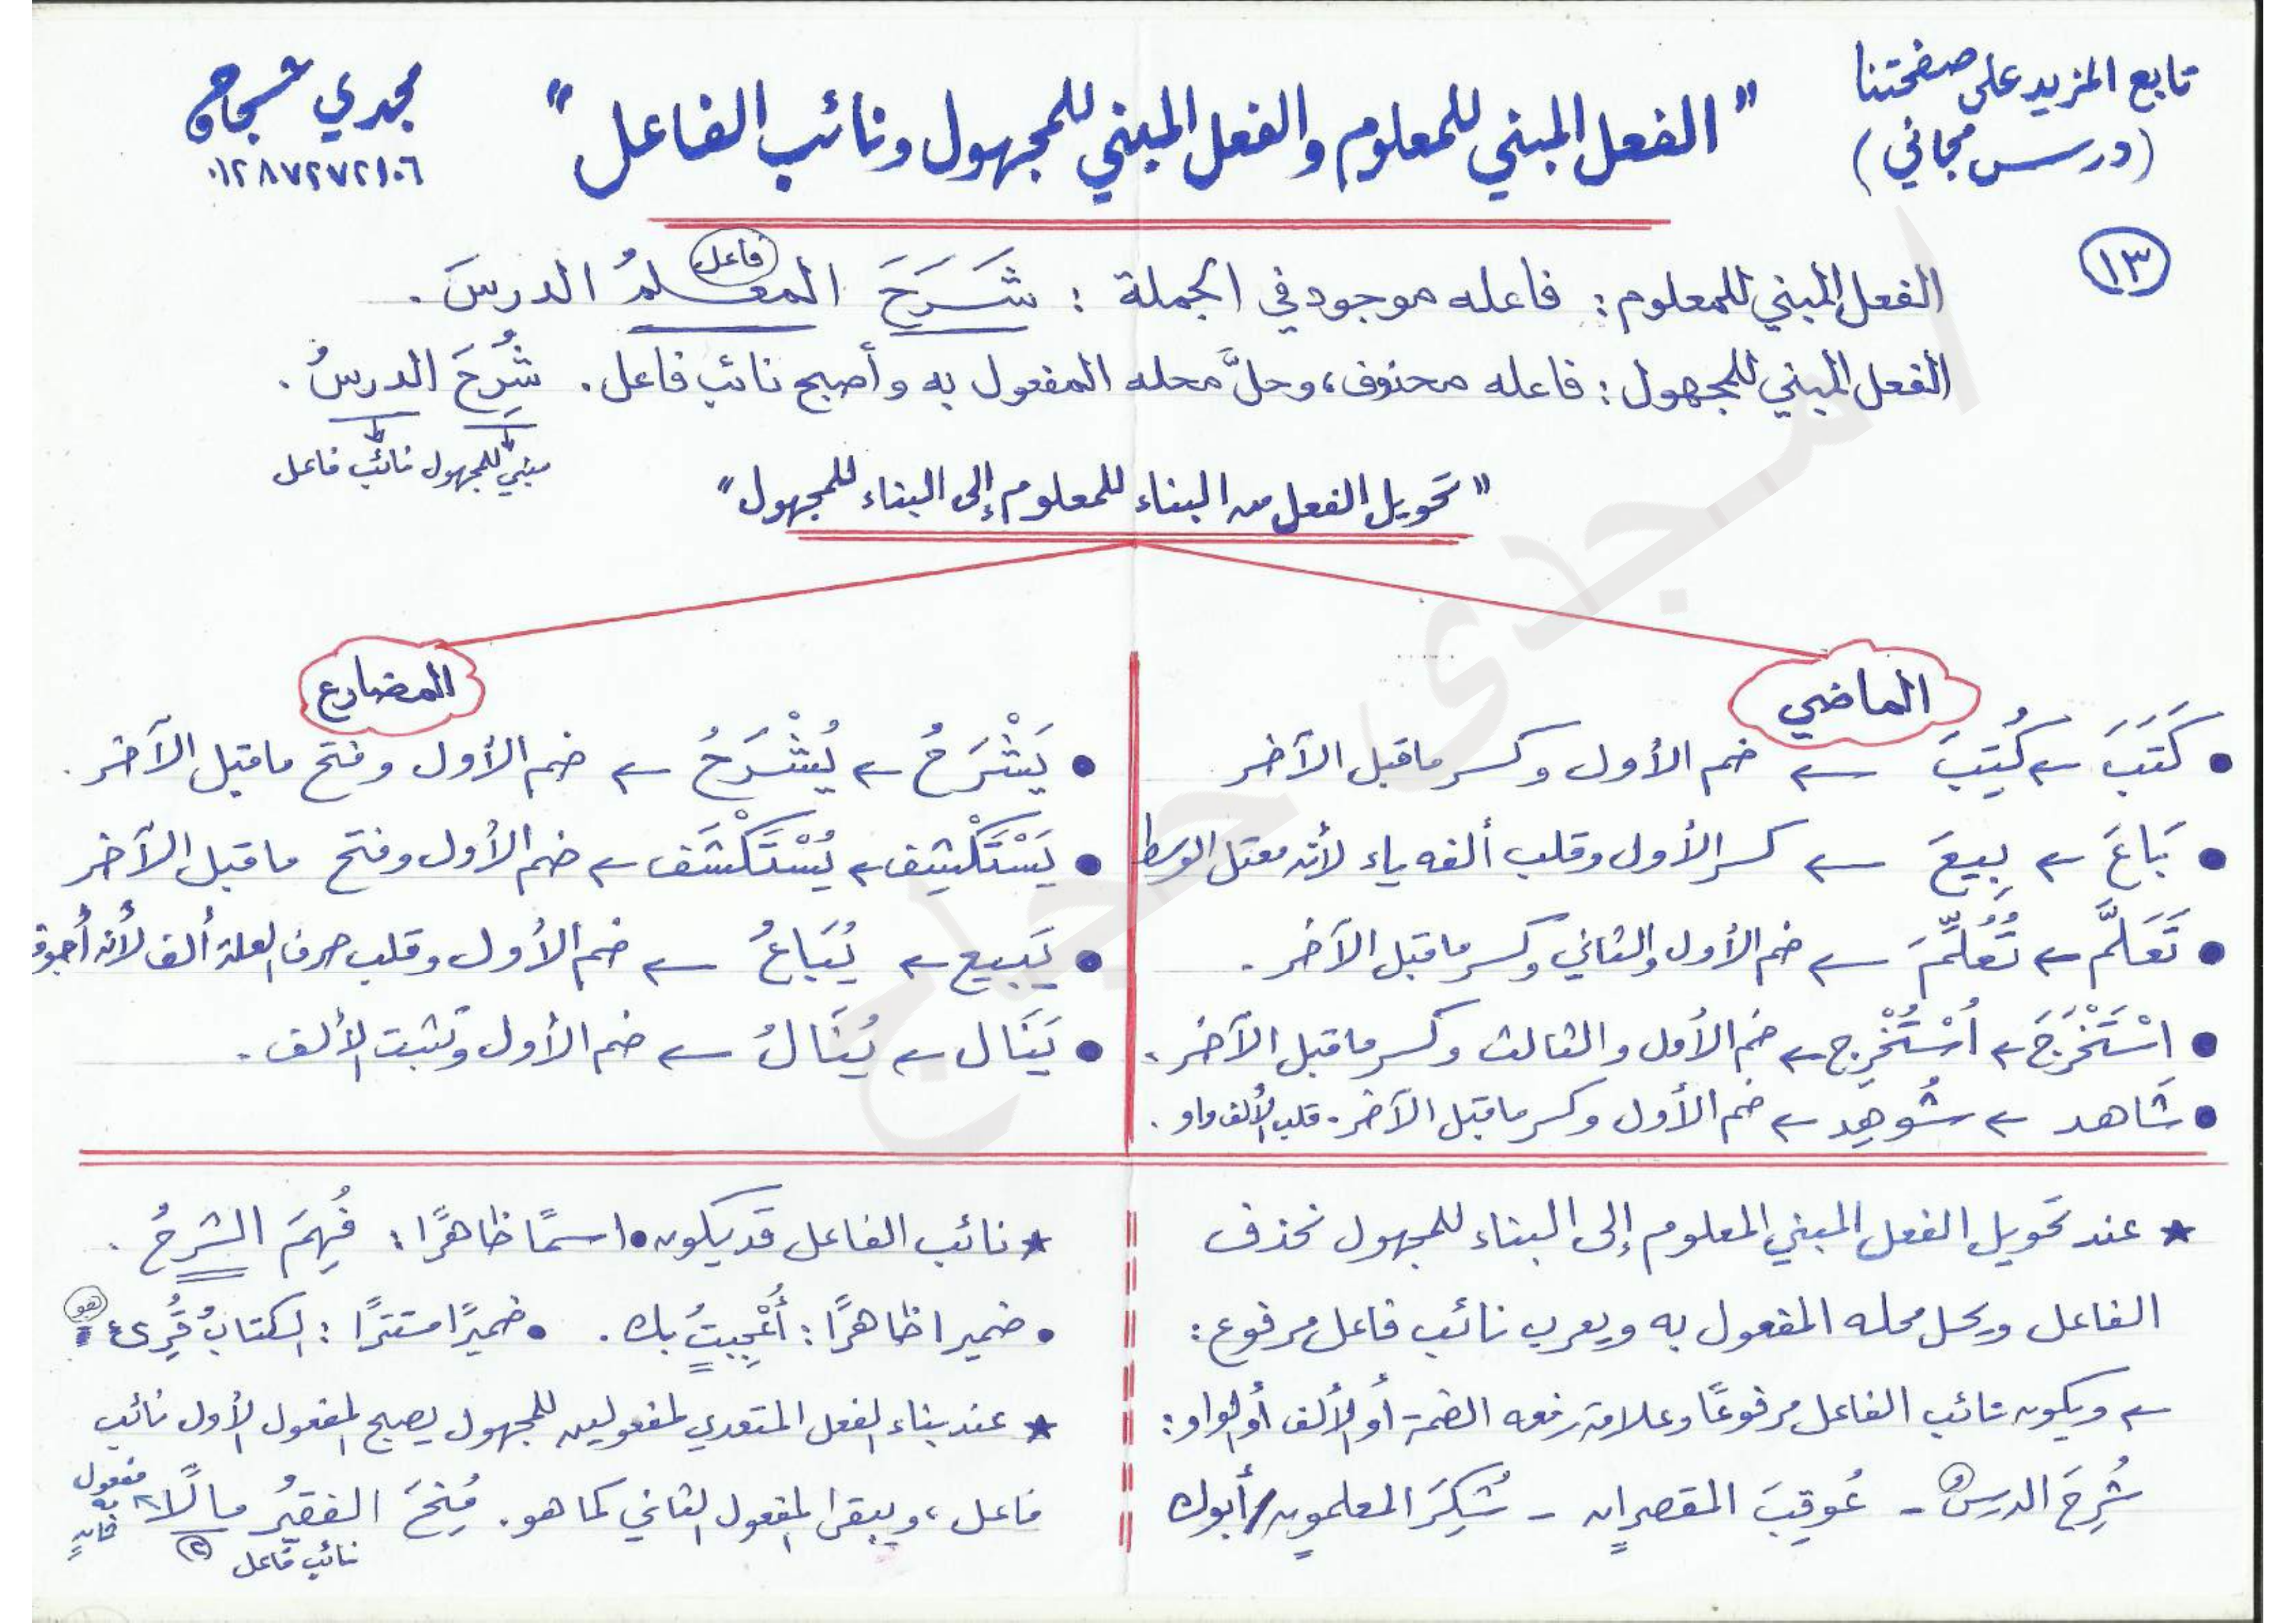 تابع المزيد على صفحتنا
(درس مجاني)
" الفعل المبني للمعلوم والفعل المبني للمجهول ونائب الفاعل "
مجدي
٠١٢٨٧٢٧٢١٠٦
١٣
الفعل المبني للمعلوم : فاعله موجود في الجملة : شَرَحَ المعلمُ الدرسَ .
فاعل
الفعل المبني للمجهول : فاعله محذوف، وحلَّ محله المفعول به وأصبح نائب فاعل . شُرِحَ الدرسُ .
مبني للمجهول نائب فاعل
" تحويل الفعل من البناء للمعلوم إلى البناء للمجهول "
الماضي
• كَتَبَ ← كُتِبَ ← ضم الأول وكسر ماقبل الآخر
• بَاعَ ← بِيعَ ← كسر الأول وقلب ألفه ياء لأنه معتل الوسط
• تَعَلَّمَ ← تُعُلِّمَ ← ضم الأول والثاني وكسر ماقبل الآخر .
• اسْتَخْرَجَ ← اُسْتُخْرِج ← ضم الأول والثالث وكسر ماقبل الآخر .
• شَاهد ← شُوهِد ← ضم الأول وكسر ماقبل الآخر . قلب الألف واو .
المضارع
• يَشْرَحُ ← يُشْرَحُ ← ضم الأول وفتح ماقبل الآخر .
• يَسْتَكْشِف ← يُسْتَكْشَف ← ضم الأول وفتح ماقبل الآخر
• يَبيع ← يُبَاعُ ← ضم الأول وقلب حرف العلة ألف لأنه أجوف
• يَنَال ← يُنَالُ ← ضم الأول وتثبت الألف .
★ عند تحويل الفعل المبني المعلوم إلى البناء للمجهول نحذف
الفاعل ويحل محله المفعول به ويعرب نائب فاعل مرفوع :
← ويكون نائب الفاعل مرفوعًا وعلامة رفعه الضمة أو الألف أو الواو :
شُرِحَ الدرسُ - عُوقِبَ المقصران - شُكِرَ المعلمون/أبوك
★ نائب الفاعل قد يكون • اسمًا ظاهرًا : فُهِمَ الشرحُ .
• ضميرا ظاهرًا : أُعْجِبتُ بك . • ضميرًا مستترًا : الكتابُ قُرِىء
هو
★ عند بناء الفعل المتعدي لمفعولين للمجهول يصبح المفعول الأول نائب
فاعل ، ويبقى المفعول الثاني كما هو . مُنِحَ الفقيرُ مالًا
نائب فاعل
مفعول به ثانٍ
مجدى حجاج